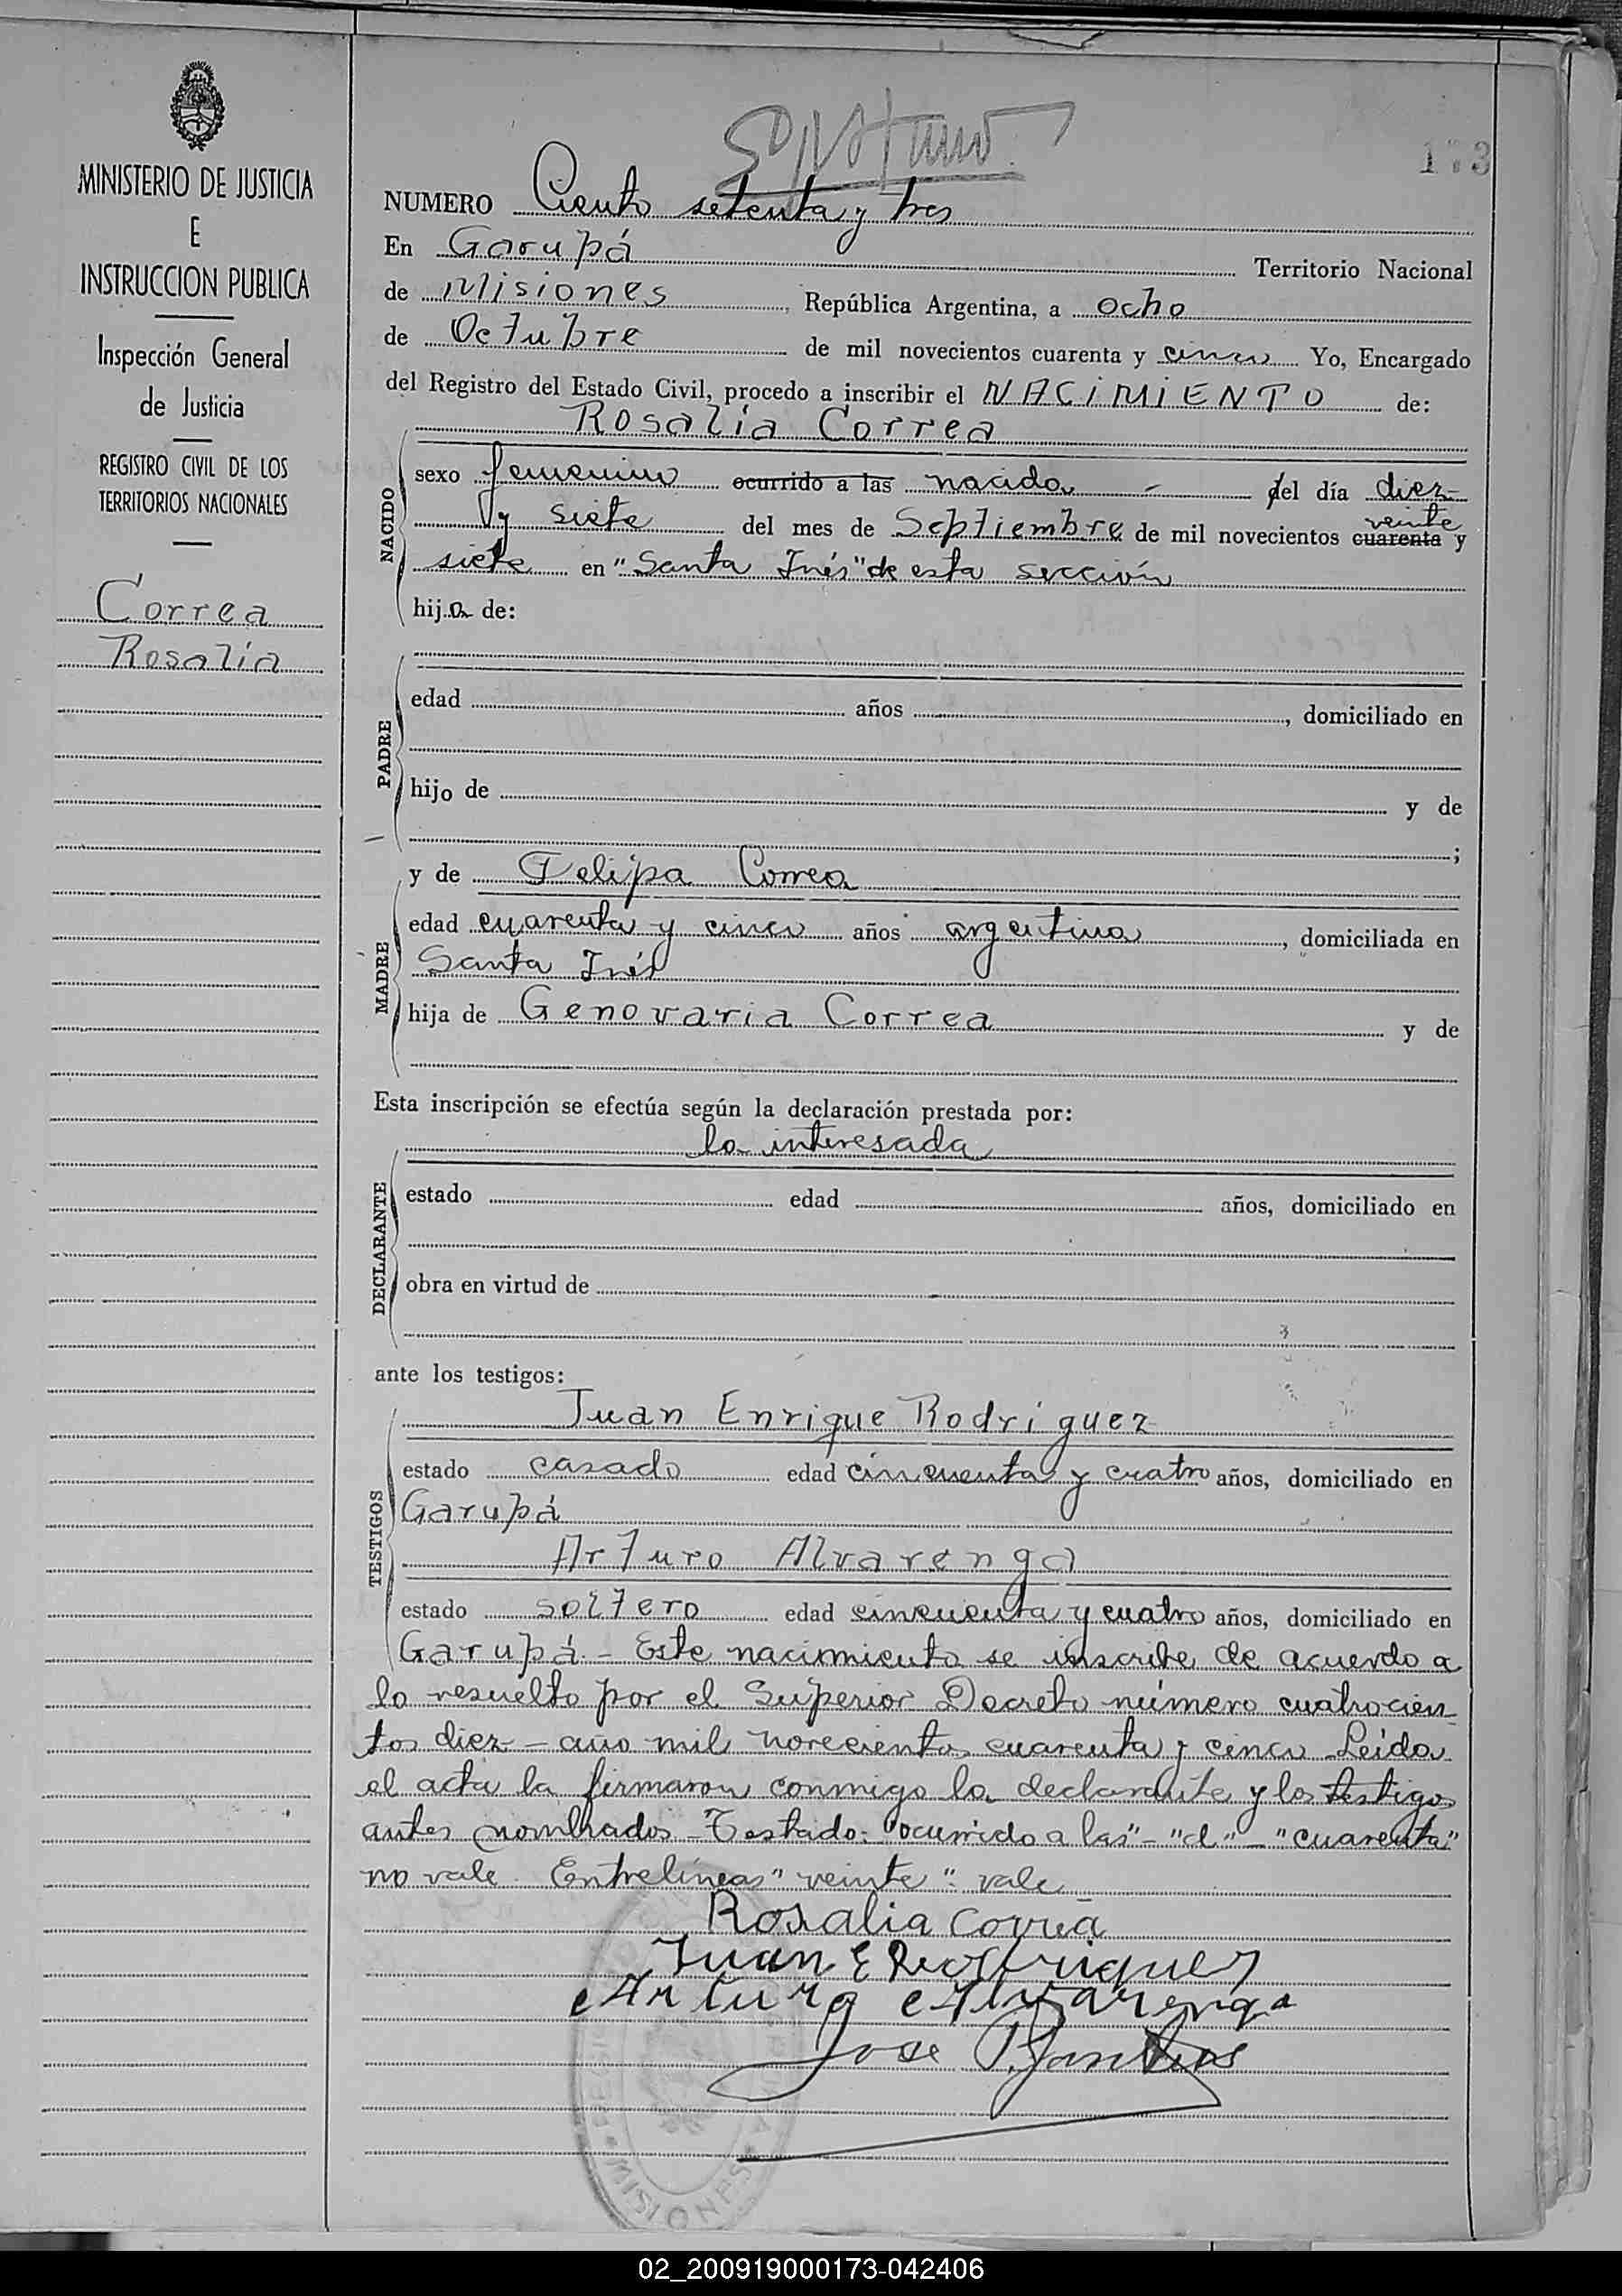 173
MINISTERIO DE JUSTICIA
E
INSTRUCCION PUBLICA
Inspección General
de Justicia
REGISTRO CIVIL DE LOS
TERRITORIOS NACIONALES
Correa
Rosalía
NUMERO Ciento setenta y tres
En Garupá Territorio Nacional
de Misiones, República Argentina, a ocho
de Octubre de mil novecientos cuarenta y cinco Yo, Encargado
del Registro del Estado Civil, procedo a inscribir el NACIMIENTO de:
Rosalía Correa
NACIDO
sexo femenino ocurrido a las nacida - del día diez
y siete del mes de Septiembre de mil novecientos cuarenta veinte y
siete en "Santa Inés" de esta sección
hija de:
PADRE
edad años , domiciliado en
hijo de y de
;
y de Felipa Correa
MADRE
edad cuarenta y cinco años argentina, domiciliada en
Santa Inés
hija de Genovaria Correa y de
Esta inscripción se efectúa según la declaración prestada por:
la interesada
DECLARANTE
estado edad años, domiciliado en
obra en virtud de
ante los testigos:
Juan Enrique Rodríguez
TESTIGOS
estado casado edad cincuenta y cuatro años, domiciliado en
Garupá
Arturo Alvarenga
estado soltero edad cincuenta y cuatro años, domiciliado en
Garupá - Este nacimiento se inscribe de acuerdo a
lo resuelto por el Superior Decreto número cuatrocien
tos diez - año mil novecientos cuarenta y cinco Leída
el acta la firmaron conmigo la declarante y los testigos
antes nombrados - Testado: "ocurrido a las" - "d" - "cuarenta"
no vale. Entrelíneas "veinte": vale
Rosalia Correa
Juan E Rodriguez
Arturo Alvarenga
Jose
MISIONES
02_200919000173-042406